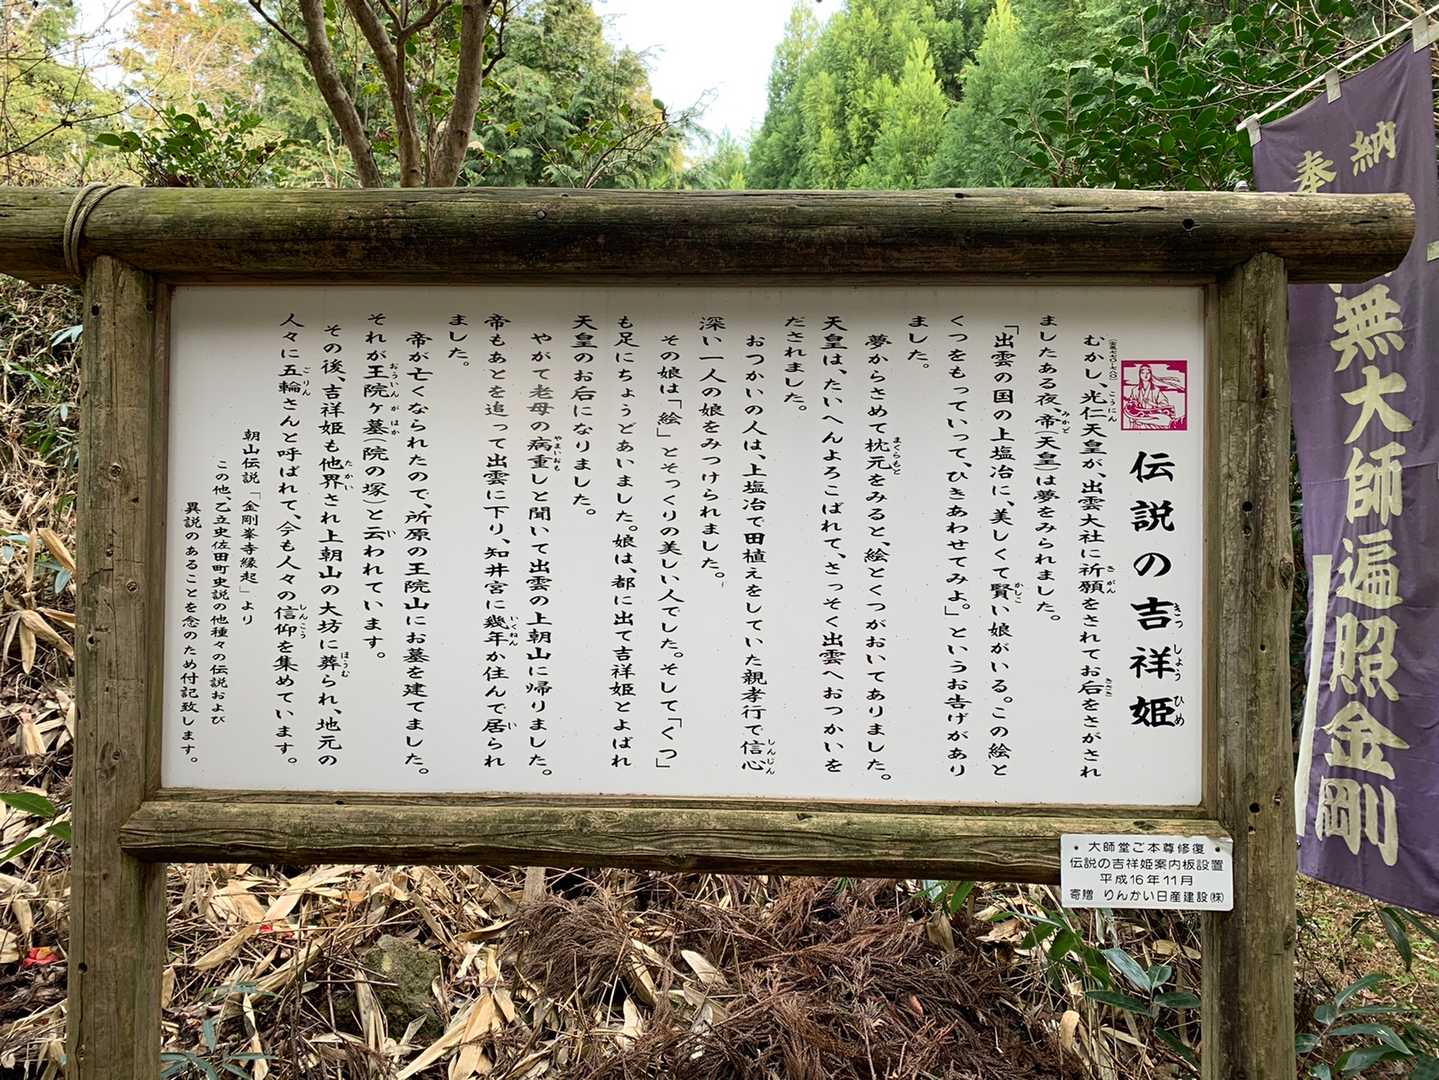 伝説の吉祥姫
きっしょうひめ
むかし、光仁天皇が、出雲大社に祈願をされてお后をさがされ
ましたある夜、帝(天皇)は夢をみられました。
「出雲の国の上塩冶に、美しくて賢い娘がいる。この絵と
くつをもっていって、ひきあわせてみよ。」というお告げがあり
ました。
夢からさめて枕元をみると、絵とくつがおいてありました。
天皇は、たいへんよろこばれて、さっそく出雲へおつかいを
だされました。
おつかいの人は、上塩冶で田植えをしていた親孝行で信心
深い一人の娘をみつけられました。
その娘は「絵」とそっくりの美しい人でした。そして「くつ」
も足にちょうどあいました。娘は、都に出て吉祥姫とよばれ
天皇のお后になりました。
やがて老母の病重しと聞いて出雲の上朝山に帰りました。
帝もあとを追って出雲に下り、知井宮に幾年か住んで居られ
ました。
帝が亡くなられたので、所原の王院山にお墓を建てました。
それが王院ヶ墓(院の塚)と云われています。
その後、吉祥姫も他界され上朝山の大坊に葬られ、地元の
人々に五輪さんと呼ばれて、今も人々の信仰を集めています。
朝山伝説「金剛峯寺縁起」より
この他、乙立史佐田町史説の他種々の伝説および
異説のあることを念のため付記致します。
大師堂ご本尊修復
伝説の吉祥姫案内板設置
平成16年11月
寄贈 りんかい日産建設㈱
奉納
無大師遍照金剛